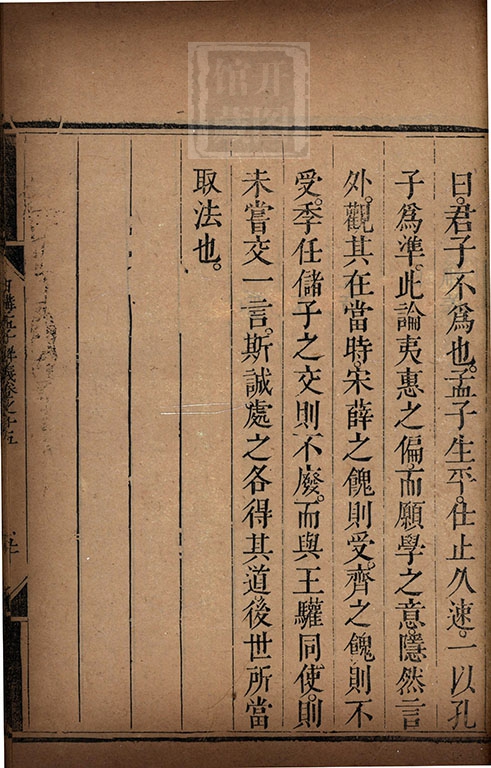 曰。君子不爲也。孟子生平。仕止久速。一以孔
子爲準。此論夷惠之偏。而願學之意。隱然言
外。觀其在當時。宋薛之餽則受。齊之餽則不
受。季任儲子之交則不廢。而與王驩同使。則
未嘗交一言。斯誠處之各得其道。後世所當
取法也。